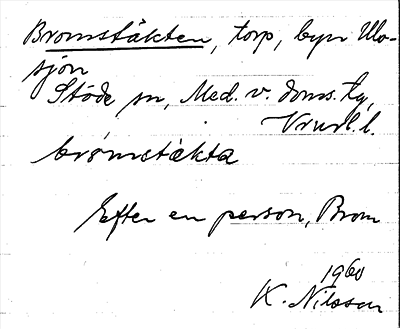 Bromstäkten, torp, byn Ulo-
sjön
Stöde sn, Med. v. doms. tg,
Vnrl. l.
brømstækta
Efter en person, Brom
1960
K. Nilsson